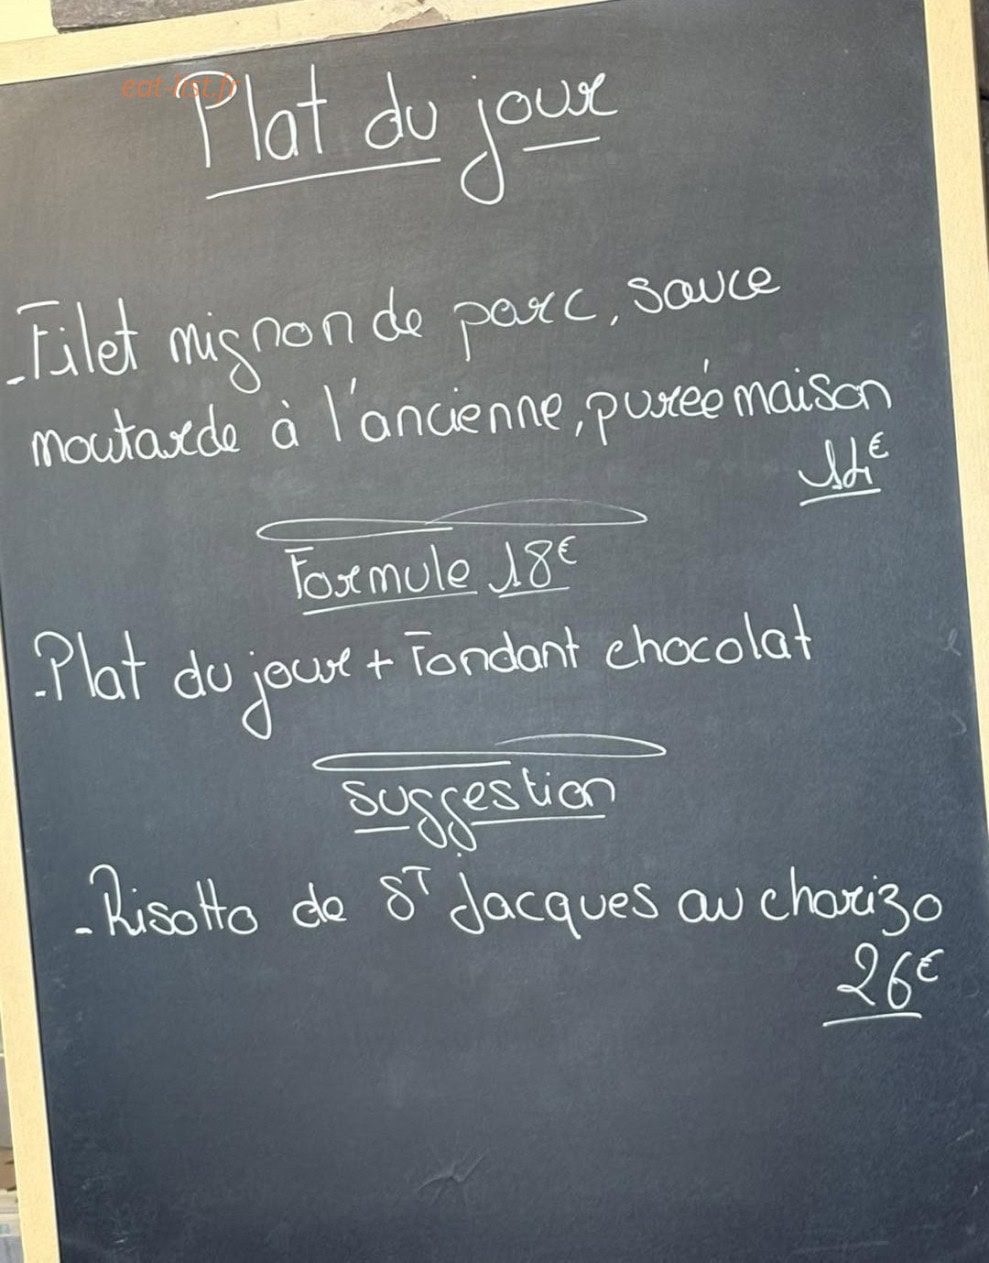 eat-list.fr
Plat du jour
-Filet mignon de porc, sauce
moutarde à l'ancienne, purée maison
14€
Formule 18€
-Plat du jour + Fondant chocolat
suggestion
-Risotto de ST Jacques au chorizo
26€